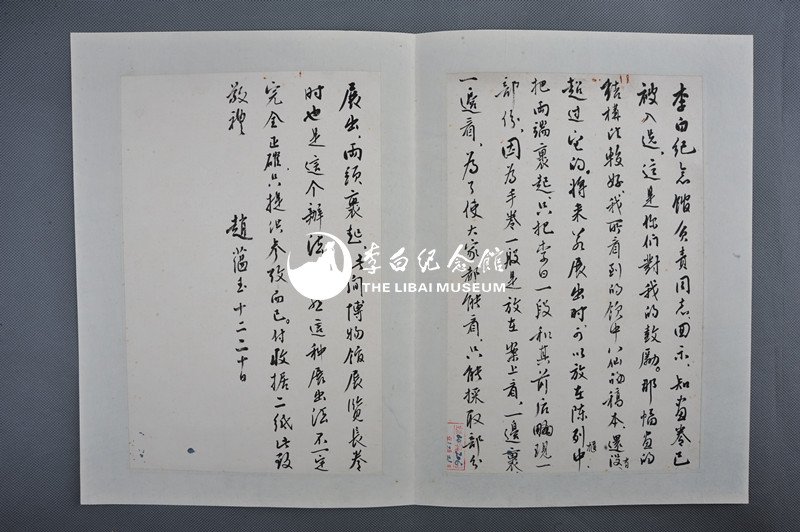 李白纪念馆负责同志回示,知画卷已
被入选,这是你们對我的鼓勵。那幅画的
结構比較好,我所看到的饮中八仙的稿本,還没有
超过它的。将来若展出时可以放在陈列中櫃,
把两端裹起,只把李白一段和其前后略现一
部份,因为手卷一般是放在案上看,一邊裹
一邊看,为了使大家都能看,只能採取部分
展出,两頭裹起,间博物馆展览長卷
时也是这个辦法 这种展出法不一定
完全正確,只提供参考而已。付收据二纸此致
敬禮
趙蕴玉 十二二十日
李白纪念馆
THE LIBAI MUSEUM